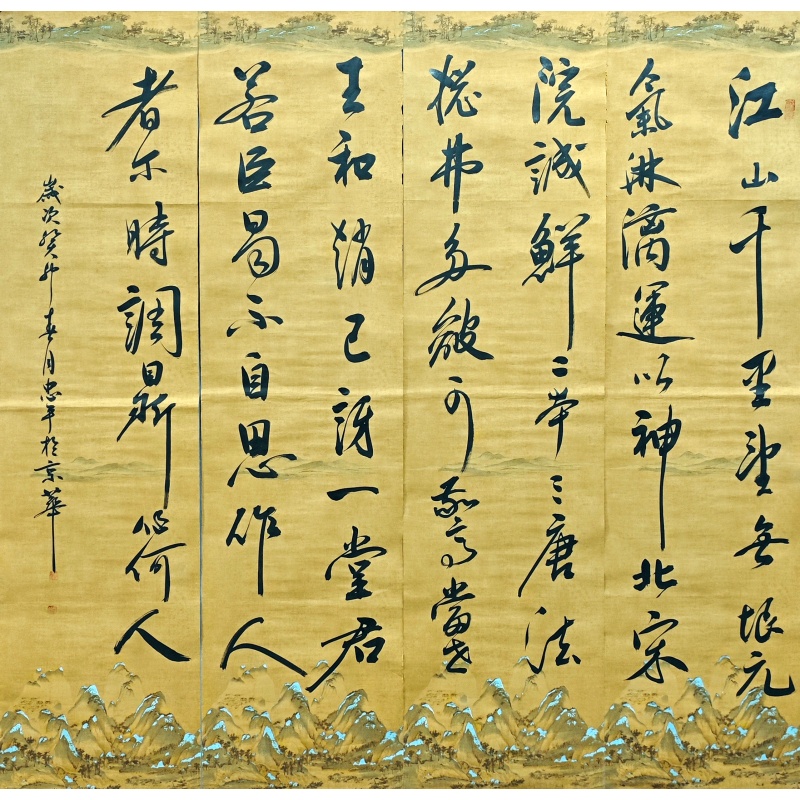 江山千里望無垠元
氣淋漓運以神北宋
院誠鮮二本三唐法
總弗多皴可驚當世
王和趙已訝一堂君
若臣曷不自思作人
者尔時調鼎作何人
歲次癸卯春月忠平於京華